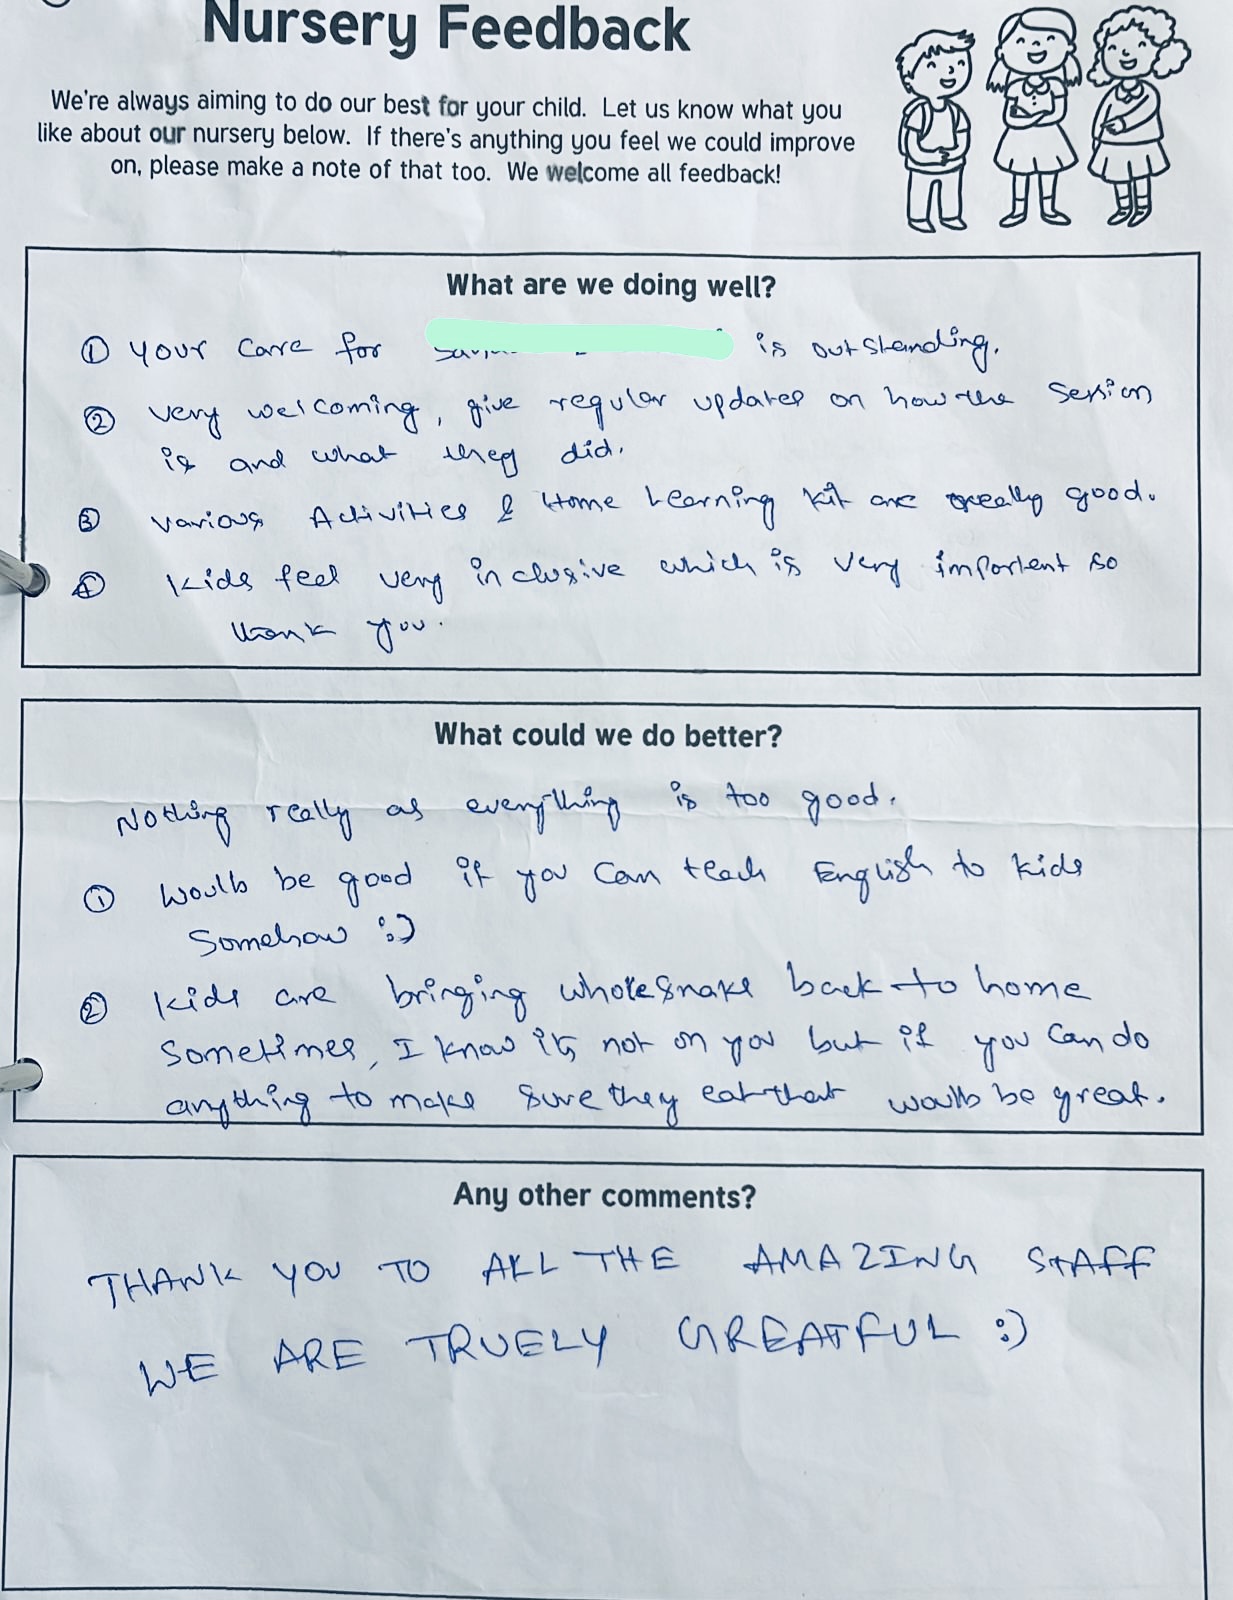 Nursery Feedback
We're always aiming to do our best for your child. Let us know what you
like about our nursery below. If there's anything you feel we could improve
on, please make a note of that too. We welcome all feedback!
What are we doing well?
① Your care for is outstanding.
② Very welcoming, give regular updates on how the session
is and what they did.
③ Various Activities & Home Learning kit are really good.
④ Kids feel very inclusive which is very important so
thank you.
What could we do better?
Nothing really as everything is too good.
① Would be good if you can teach English to kids
Somehow :)
② Kids are bringing whole snake back to home
Sometimes, I know its not on you but if you can do
anything to make sure they eat that would be great.
Any other comments?
THANK YOU TO ALL THE AMAZING STAFF
WE ARE TRUELY GREATFUL :)